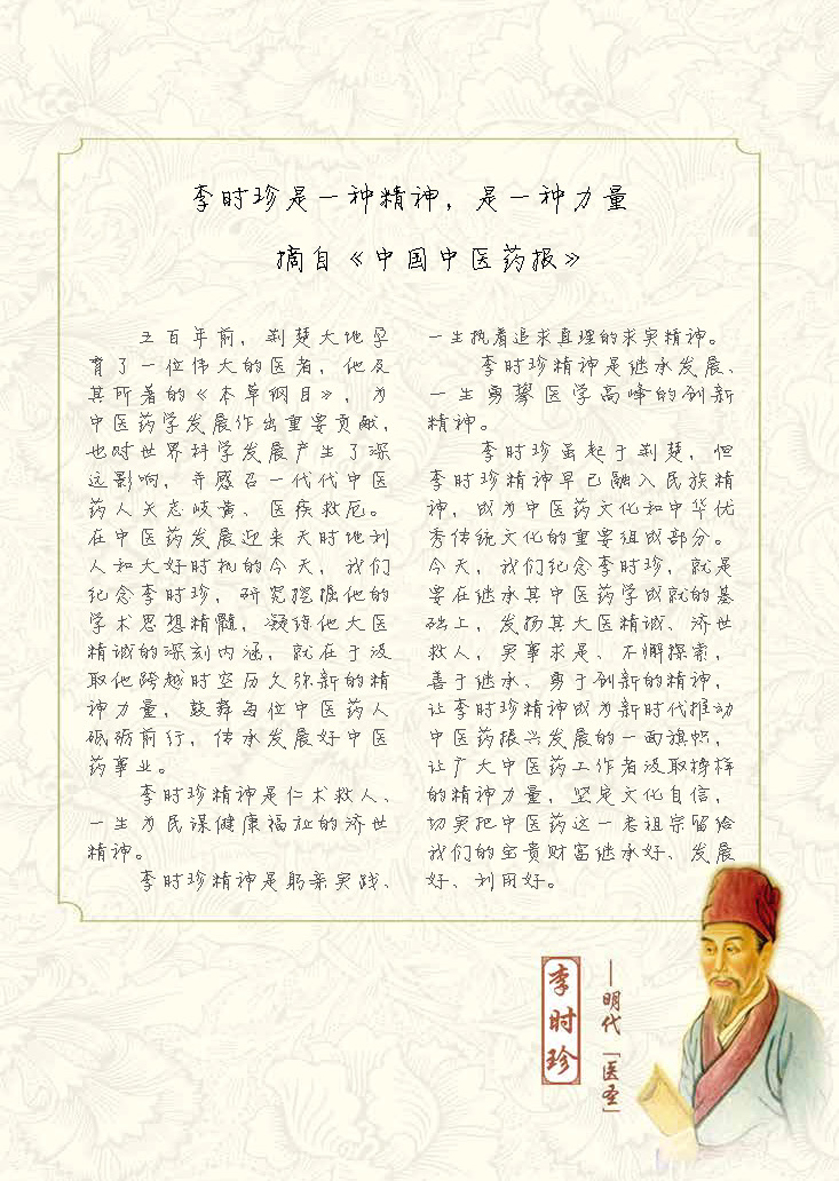 李时珍是一种精神，是一种力量
摘自《中国中医药报》
五百年前，荆楚大地孕
育了一位伟大的医者，他及
其所著的《本草纲目》，为
中医药学发展作出重要贡献，
也对世界科学发展产生了深
远影响，并感召一代代中医
药人矢志岐黄、医疾救厄。
在中医药发展迎来天时地利
人和大好时机的今天，我们
纪念李时珍，研究挖掘他的
学术思想精髓，凝练他大医
精诚的深刻内涵，就在于汲
取他跨越时空历久弥新的精
神力量，鼓舞每位中医药人
砥砺前行，传承发展好中医
药事业。
李时珍精神是仁术救人、
一生为民谋健康福祉的济世
精神。
李时珍精神是躬亲实践、
一生执着追求真理的求实精神。
李时珍精神是继承发展、
一生勇攀医学高峰的创新
精神。
李时珍虽起于荆楚，但
李时珍精神早已融入民族精
神，成为中医药文化和中华优
秀传统文化的重要组成部分。
今天，我们纪念李时珍，就是
要在继承其中医药学成就的基
础上，发扬其大医精诚、济世
救人，实事求是、不懈探索，
善于继承、勇于创新的精神，
让李时珍精神成为新时代推动
中医药振兴发展的一面旗帜，
让广大中医药工作者汲取榜样
的精神力量，坚定文化自信，
切实把中医药这一老祖宗留给
我们的宝贵财富继承好、发展
好、利用好。
李时珍
—明代「医圣」